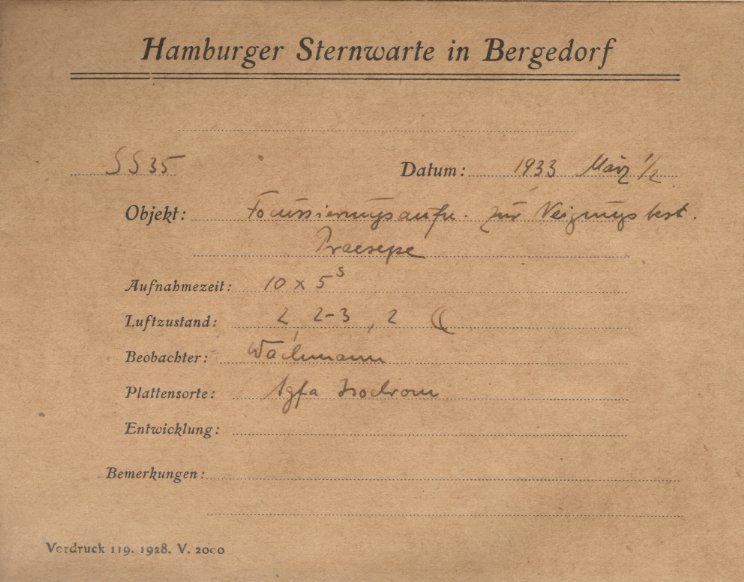 Hamburger Sternwarte in Bergedorf
SS35 Datum: 1933 März 1/2
Objekt: Focussierungsaufn. zur Neigungsbest.
Praesepe
Aufnahmezeit: 10 x 5s
Luftzustand: 2, 2-3, 2 ☾
Beobachter: Wachmann
Plattensorte: Agfa Isochrom
Entwicklung:
Bemerkungen:
Vordruck 119. 1928. V. 2000